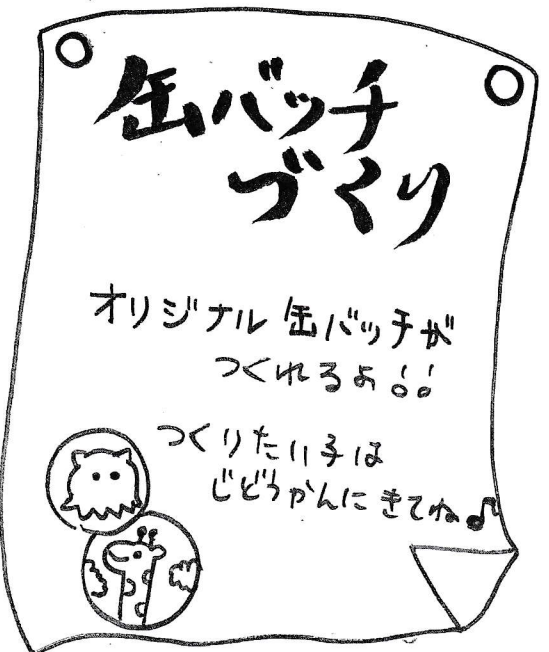 缶バッチ
づくり
オリジナル缶バッチが
つくれるよ!!
つくりたい子は
じどうかんにきてね♪